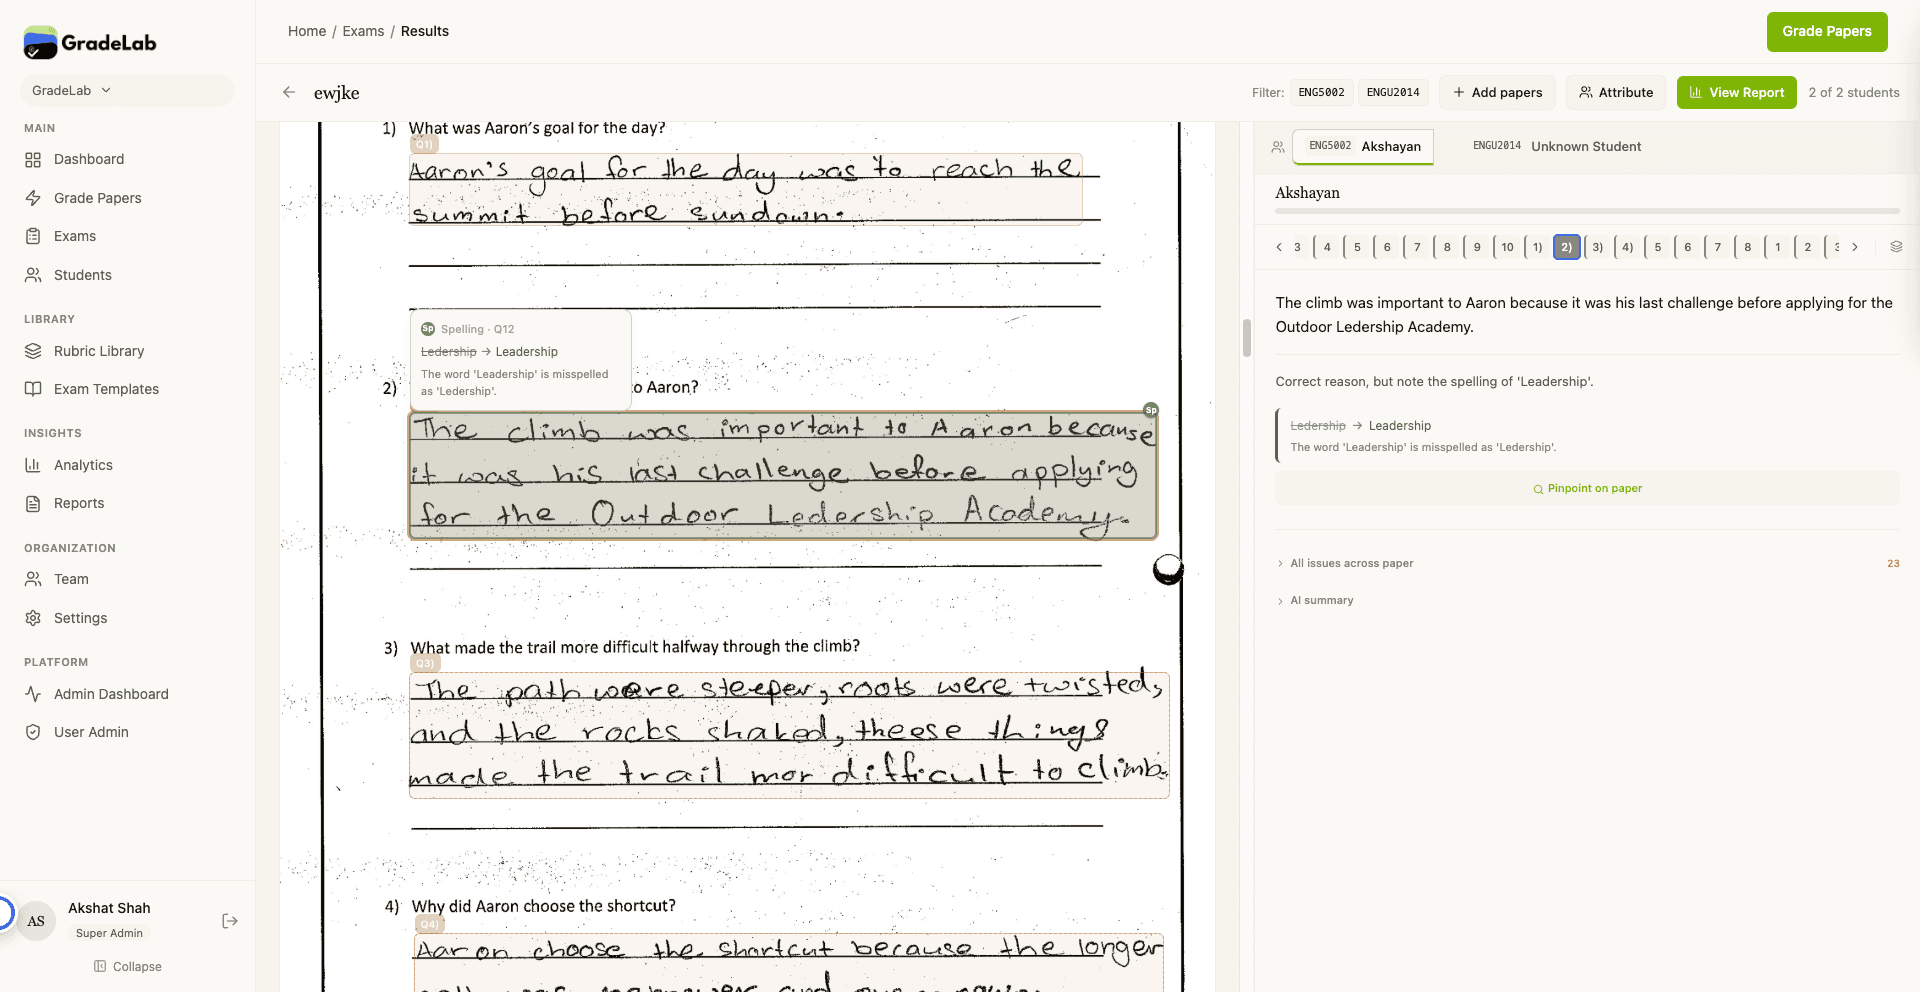 GradeLab
Home / Exams / Results
Grade Papers
GradeLab
MAIN
Dashboard
Grade Papers
Exams
Students
LIBRARY
Rubric Library
Exam Templates
INSIGHTS
Analytics
Reports
ORGANIZATION
Team
Settings
PLATFORM
Admin Dashboard
User Admin
AS
Akshat Shah
Super Admin
Collapse
ewjke
Filter: ENG5002 ENGU2014
Add papers
Attribute
View Report
2 of 2 students
1) What was Aaron's goal for the day?
Q1)
Aaron's goal for the day was to reach the
summit before sundown.
Sp Spelling · Q12
Ledership → Leadership
The word 'Leadership' is misspelled
as 'Ledership'.
2) to Aaron?
Sp
The climb was important to Aaron because
it was his last challenge before applying
for the Outdoor Ledership Academy.
3) What made the trail more difficult halfway through the climb?
Q3)
The path weere steeper, roots were twisted,
and the rocks shaked, theese things
made the trail mor difficult to climb.
4) Why did Aaron choose the shortcut?
Q4)
Aaron choose the shortcut because the longer
ENG5002 Akshayan
ENGU2014 Unknown Student
Akshayan
3 4 5 6 7 8 9 10 1) 2) 3) 4) 5 6 7 8 1 2 3
The climb was important to Aaron because it was his last challenge before applying for the
Outdoor Ledership Academy.
Correct reason, but note the spelling of 'Leadership'.
Ledership → Leadership
The word 'Leadership' is misspelled as 'Ledership'.
Pinpoint on paper
All issues across paper 23
AI summary